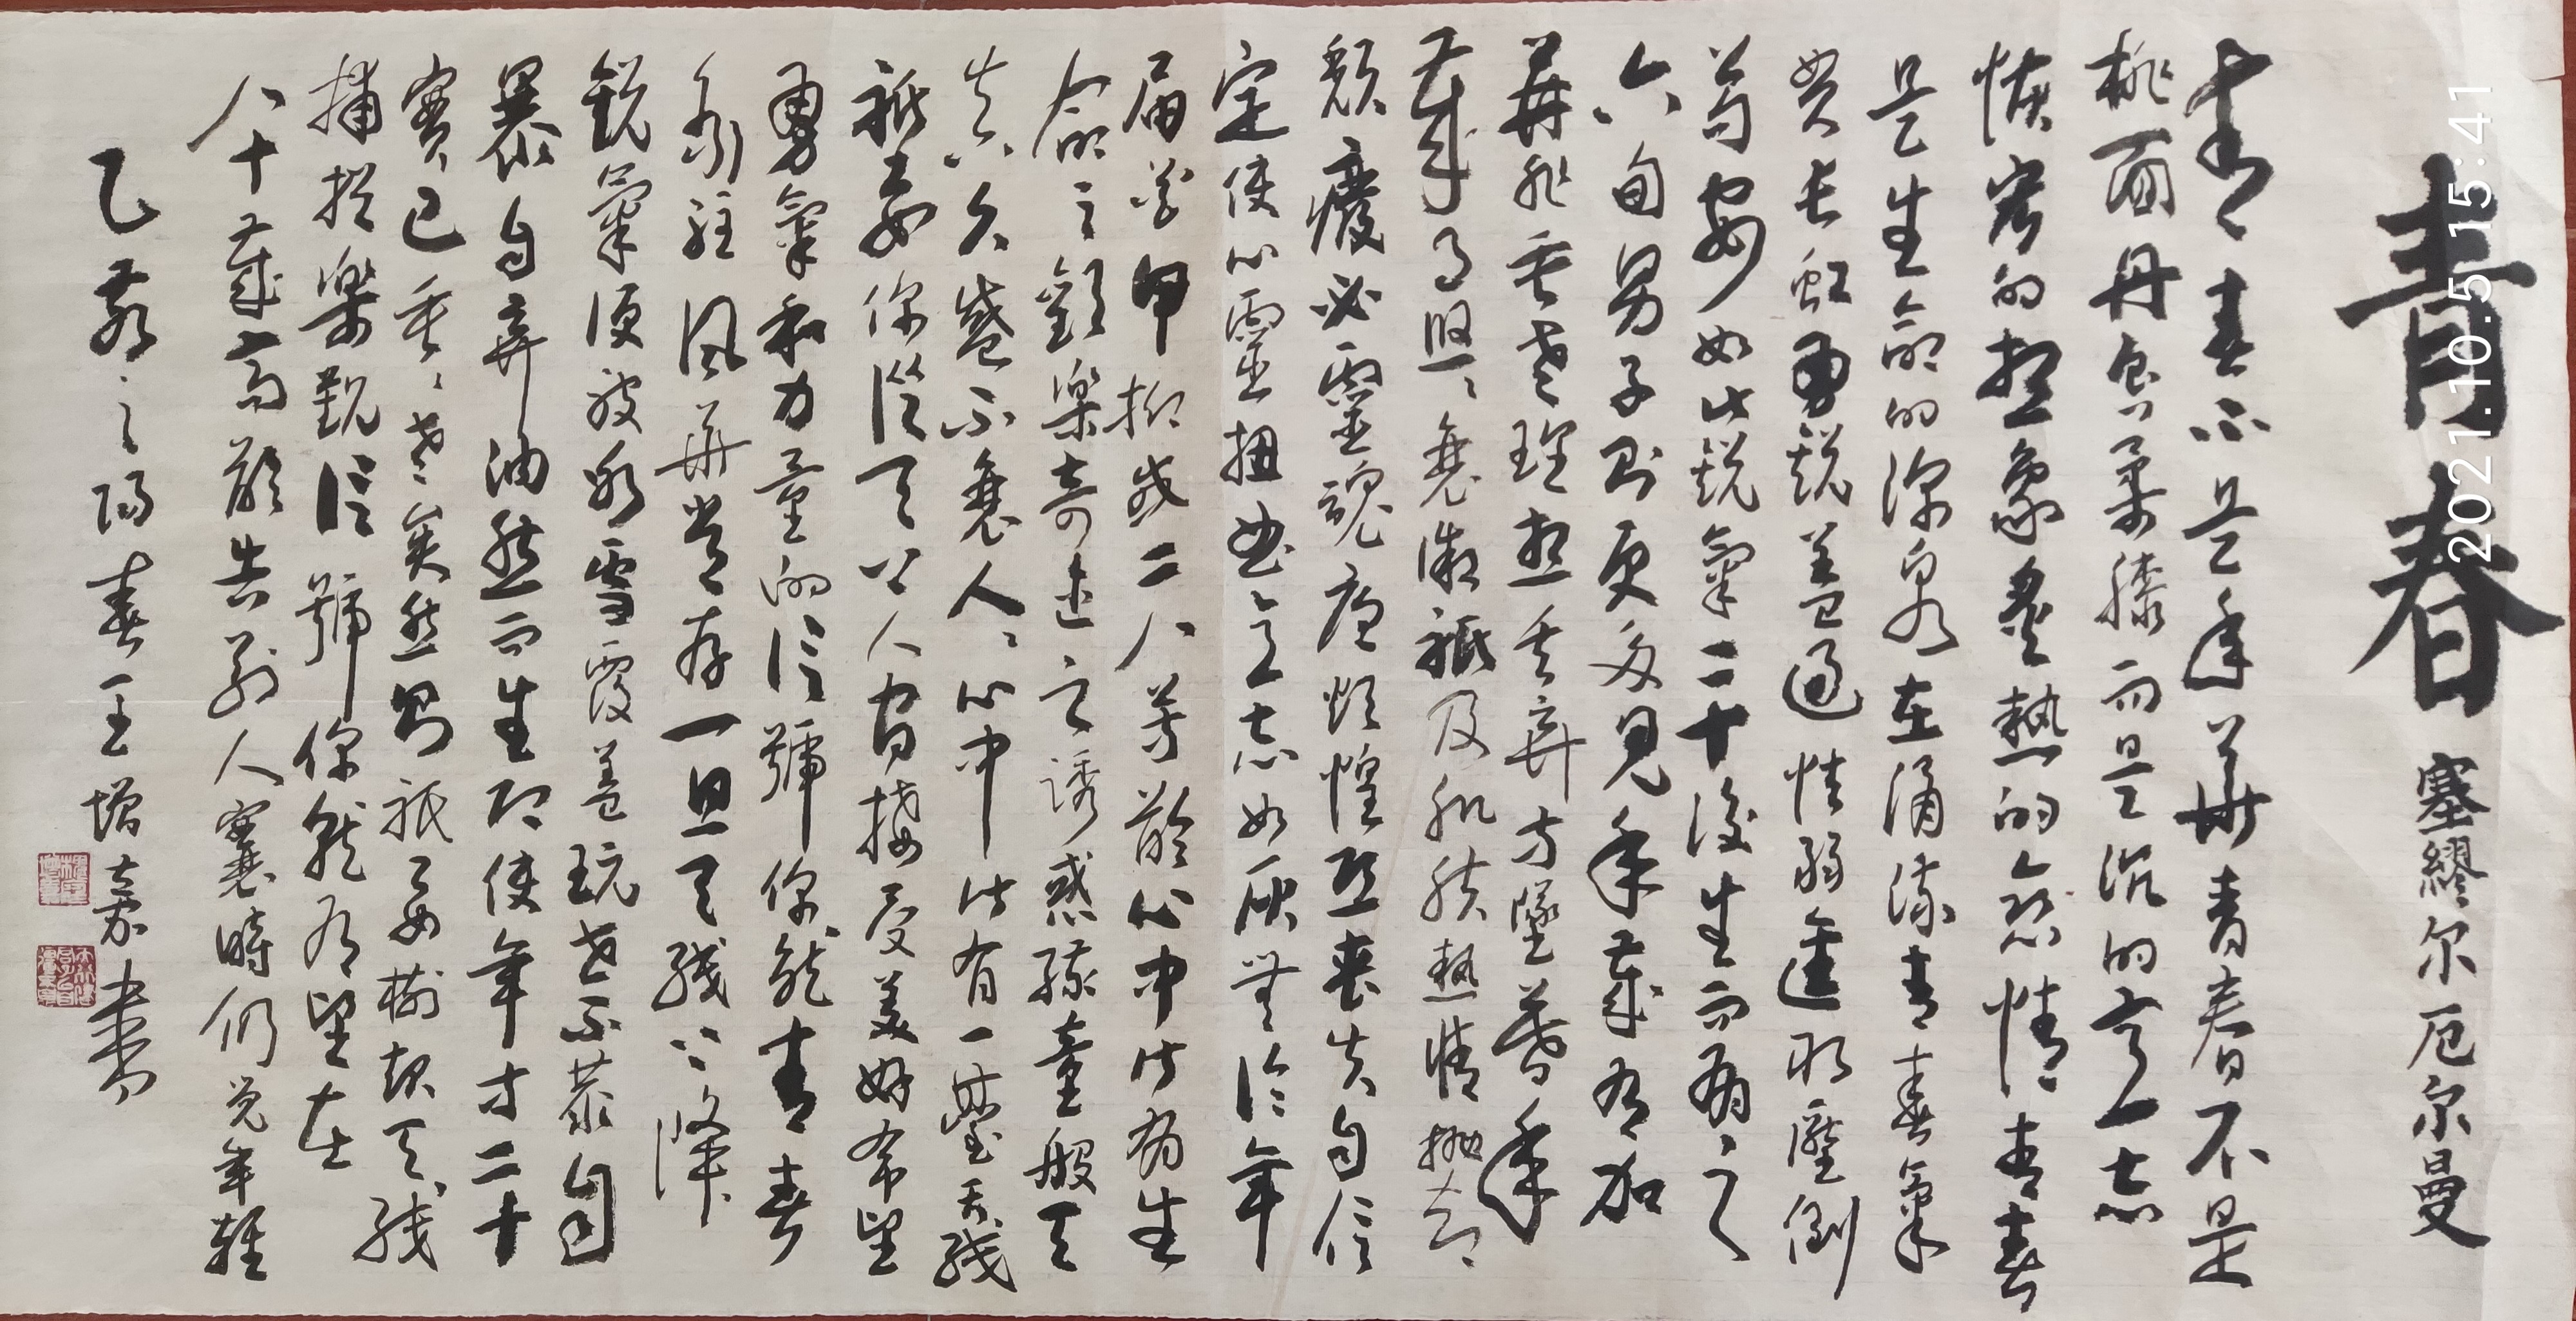 青春
塞繆尔厄尔曼
青春不是年華青春不是
桃面丹唇柔膝而是沉的意志
恢宏的想象炙熱的忿情青春
是生命的深泉在涌流青春氣
貫長虹勇銳盖過怯弱進取壓倒
苟安如此銳氣二十後生而有之
六旬男子則更多見年歲有加
並非垂老理想丟棄方墮暮年
歲月悠悠衰微祇及肌膚熱情抛却
頹廢必至靈魂憂煩惶恐喪失自信
定使心靈扭曲意志如灰無論年
届花甲抑或二八芳齡心中皆有生
命之歡樂奇迹之誘惑孩童般天
真久盛不衰人人心中皆有一臺天綫
祇要你從天上人間接受美好希望
勇氣和力量的信號你就青春
永駐風華常存一旦天綫下降
銳氣便被冰雪覆盖玩世不恭自
暴自棄油然而生即使年才二十
實已垂垂老矣然則祇要樹起天綫
捕捉樂觀信號你就有望在
八十歲高齡告别人寰時仍觉年輕
乙
之陽春王增
書
2021.10.5 15:41